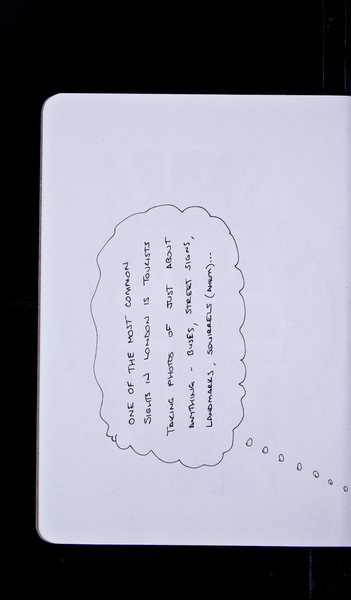 ONE OF THE MOST COMMON
SIGHTS IN LONDON IS TOURISTS
TAKING PHOTOS OF JUST ABOUT
ANYTHING - BUSES, STREET SIGNS,
LANDMARKS, SQUIRRELS (AHEM)...